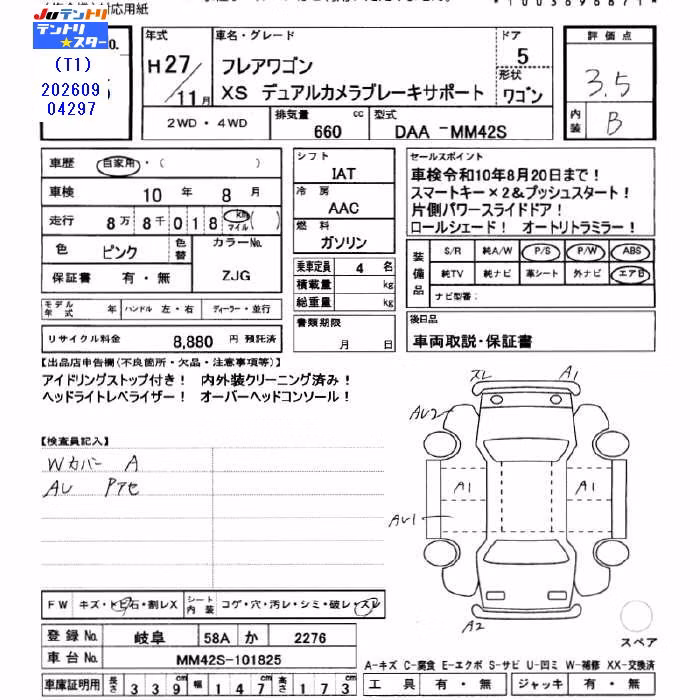 対応用紙
JUテントリ
テントリ★スター
(T1)
202609
04297
年式
H27/11月
車名・グレード
フレアワゴン
XS デュアルカメラブレーキサポート
ドア
5
形状
ワゴン
評価点
3.5
内装
B
2WD・4WD
排気量
660 cc
型式
DAA-MM42S
車歴 自家用・( )
車検 10年 8月
走行 8万8千018 km マイル( )
色 ピンク
色替
カラーNo. ZJG
保証書 有・無
モデル年式 年 ハンドル 左・右 ディーラー・並行
リサイクル料金 8,880 円 預託済
シフト
IAT
冷房
AAC
燃料
ガソリン
乗車定員 4 名
積載量 kg
総重量 kg
書類期限
月 日
セールスポイント
車検令和10年8月20日まで!
スマートキー×2&プッシュスタート!
片側パワースライドドア!
ロールシェード! オートリトラミラー!
装備品
S/R 純A/W P/S P/W ABS
純TV 純ナビ 革シート 外ナビ エアB
ナビ型番:
後日品
車両取説・保証書
【出品店申告欄(不良箇所・欠品・注意事項等)】
アイドリングストップ付き! 内外装クリーニング済み!
ヘッドライトレベライザー! オーバーヘッドコンソール!
【検査員記入】
Wカバー A
AU Pアセ
スレ A1
AU2
A1 A1
AU1
A2
スペア
FW キズ・トビ石・割レX
シート内装 コゲ・穴・汚レ・シミ・破レ・スレ
登録No. 岐阜 58A か 2276
車台No. MM42S-101825
車庫証明用 長さ 339 幅 147 高さ 173
A-キズ C-腐食 E-エクボ S-サビ U-凹ミ W-補修 XX-交換済
工具 有・無 ジャッキ 有・無